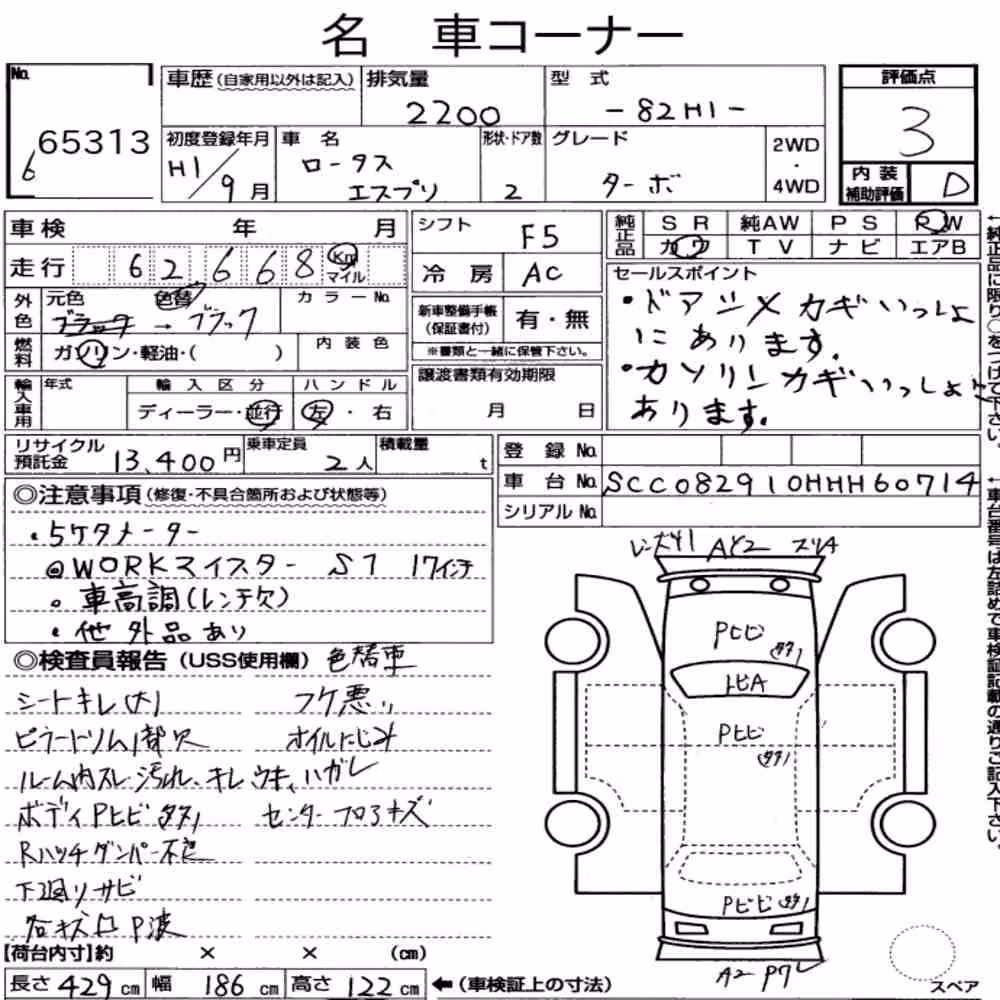 名 車コーナー
No.
65313
6
車歴(自家用以外は記入)
排気量
2200
型 式
-82H1-
評価点
3
初度登録年月
H1/9月
車 名
ロータス
エスプリ
形状・ドア数
2
グレード
ターボ
2WD
・
4WD
内 装
補助評価
D
車検 年 月
シフト
F5
純正品
S R 純AW P S P W
カワ T V ナビ エアB
走行 62668 Km マイル
冷 房 AC
セールスポイント
・ドアツメカギいっしょ
にあります。
・ガソリンカギいっしょに
あります。
外色
元色 色替
ブラック → ブラック
カラーNo.
新車整備手帳
(保証書付)
有・無
※書類と一緒に保管下さい。
燃料
ガソリン・軽油・( )
内 装 色
譲渡書類有効期限
月 日
輸入車用
年式
輸 入 区 分
ディーラー・並行
ハ ン ド ル
左・右
リサイクル
預託金
13,400円
乗車定員
2人
積載量
t
登 録 No.
車 台 No. SCC082910HHH60714
シリアル No.
↑純正品に限り○をつけて下さい。
↑車台番号は左詰めで車検証記載の通りご記入下さい。
◎注意事項(修復・不具合箇所および状態等)
・5ケタメーター
◎WORKマイスター S1 17インチ
・車高調(レンチ欠)
・他 外品あり
◎検査員報告(USS使用欄) 色替車
シートキレ(大) フケ悪い
ピラートリム1部欠 オイルにじみ
ルーム内スレ汚れ、キレ ウキ、ハガレ
ボディPヒビ タタ1 センターフロアキズ
Rハッチダンパー不良
下廻りサビ
各キズ凹 P波
レンズキ1 AY2 スリ4
Pヒビ
タタ1
トビA
Pヒビ
タタ1
Pヒビ タタ1
A2 Pワレ
スペア
【荷台内寸】約 × × (cm)
長さ 429 cm 幅 186 cm 高さ 122 cm ←(車検証上の寸法)